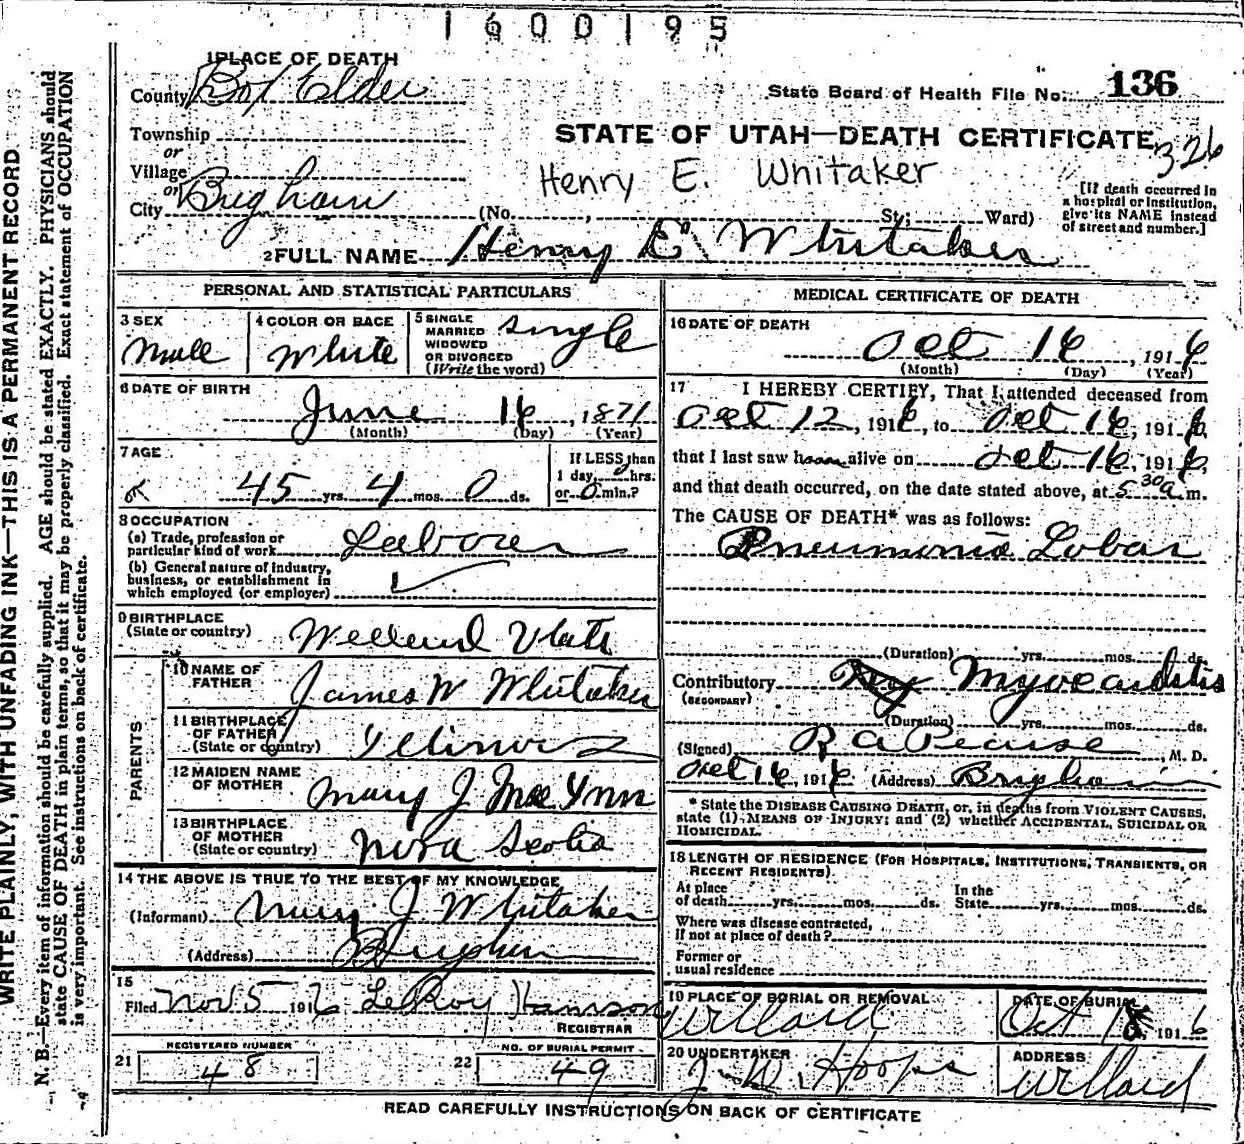 1600195
1 PLACE OF DEATH
County Box Elder
State Board of Health File No. 136
Township
or
Village
or
City Brigham
STATE OF UTAH—DEATH CERTIFICATE
326
Henry E. Whitaker
(No. , St; Ward)
[If death occurred in
a hospital or institution,
give its NAME instead
of street and number.]
2 FULL NAME Henry E Whitaker
PERSONAL AND STATISTICAL PARTICULARS
3 SEX
Male
4 COLOR OR RACE
White
5 SINGLE
MARRIED
WIDOWED
OR DIVORCED
(Write the word)
Single
6 DATE OF BIRTH
June 16, 1871
(Month) (Day) (Year)
7 AGE
45 yrs. 4 mos. 0 ds.
If LESS than
1 day, hrs.
or 0 min.?
8 OCCUPATION
(a) Trade, profession or
particular kind of work Laborer
(b) General nature of industry,
business, or establishment in
which employed (or employer)
9 BIRTHPLACE
(State or country)
Utah
PARENTS
10 NAME OF
FATHER
James W Whitaker
11 BIRTHPLACE
OF FATHER
(State or country)
Illinois
12 MAIDEN NAME
OF MOTHER
Mary J
13 BIRTHPLACE
OF MOTHER
(State or country)
Nova Scotia
14 THE ABOVE IS TRUE TO THE BEST OF MY KNOWLEDGE
(Informant) Mary J Whitaker
(Address) Brigham
15
Filed Nov 5 1916 LeRoy Hanson
REGISTRAR
REGISTERED NUMBER
21 48
NO. OF BURIAL PERMIT
22 49
MEDICAL CERTIFICATE OF DEATH
16 DATE OF DEATH
Oct 16, 1916
(Month) (Day) (Year)
17 I HEREBY CERTIFY, That I attended deceased from
Oct 12, 1916, to Oct 16, 1916,
that I last saw h alive on Oct 16, 1916,
and that death occurred, on the date stated above, at 5 30 a. m.
The CAUSE OF DEATH* was as follows:
Pneumonia Lobar
(Duration) yrs. mos. ds.
Contributory Myocarditis
(SECONDARY)
(Duration) yrs. mos. ds.
(Signed) R A Pearse, M. D.
Oct 16, 1916 (Address) Brigham
* State the DISEASE CAUSING DEATH, or, in deaths from VIOLENT CAUSES,
state (1) MEANS OF INJURY; and (2) whether ACCIDENTAL, SUICIDAL OR
HOMICIDAL.
18 LENGTH OF RESIDENCE (FOR HOSPITALS, INSTITUTIONS, TRANSIENTS, OR
RECENT RESIDENTS).
At place
of death yrs. mos. ds.
In the
State yrs. mos. ds.
Where was disease contracted,
if not at place of death?
Former or
usual residence
19 PLACE OF BURIAL OR REMOVAL
Willard
DATE OF BURIAL
Oct 18 1916
20 UNDERTAKER
J. D. Hoops
ADDRESS
Willard
READ CAREFULLY INSTRUCTIONS ON BACK OF CERTIFICATE
WRITE PLAINLY, WITH UNFADING INK—THIS IS A PERMANENT RECORD
N. B.—Every item of information should be carefully supplied. AGE should be stated EXACTLY. PHYSICIANS should
state CAUSE OF DEATH in plain terms, so that it may be properly classified. Exact statement of OCCUPATION
is very important. See instructions on back of certificate.